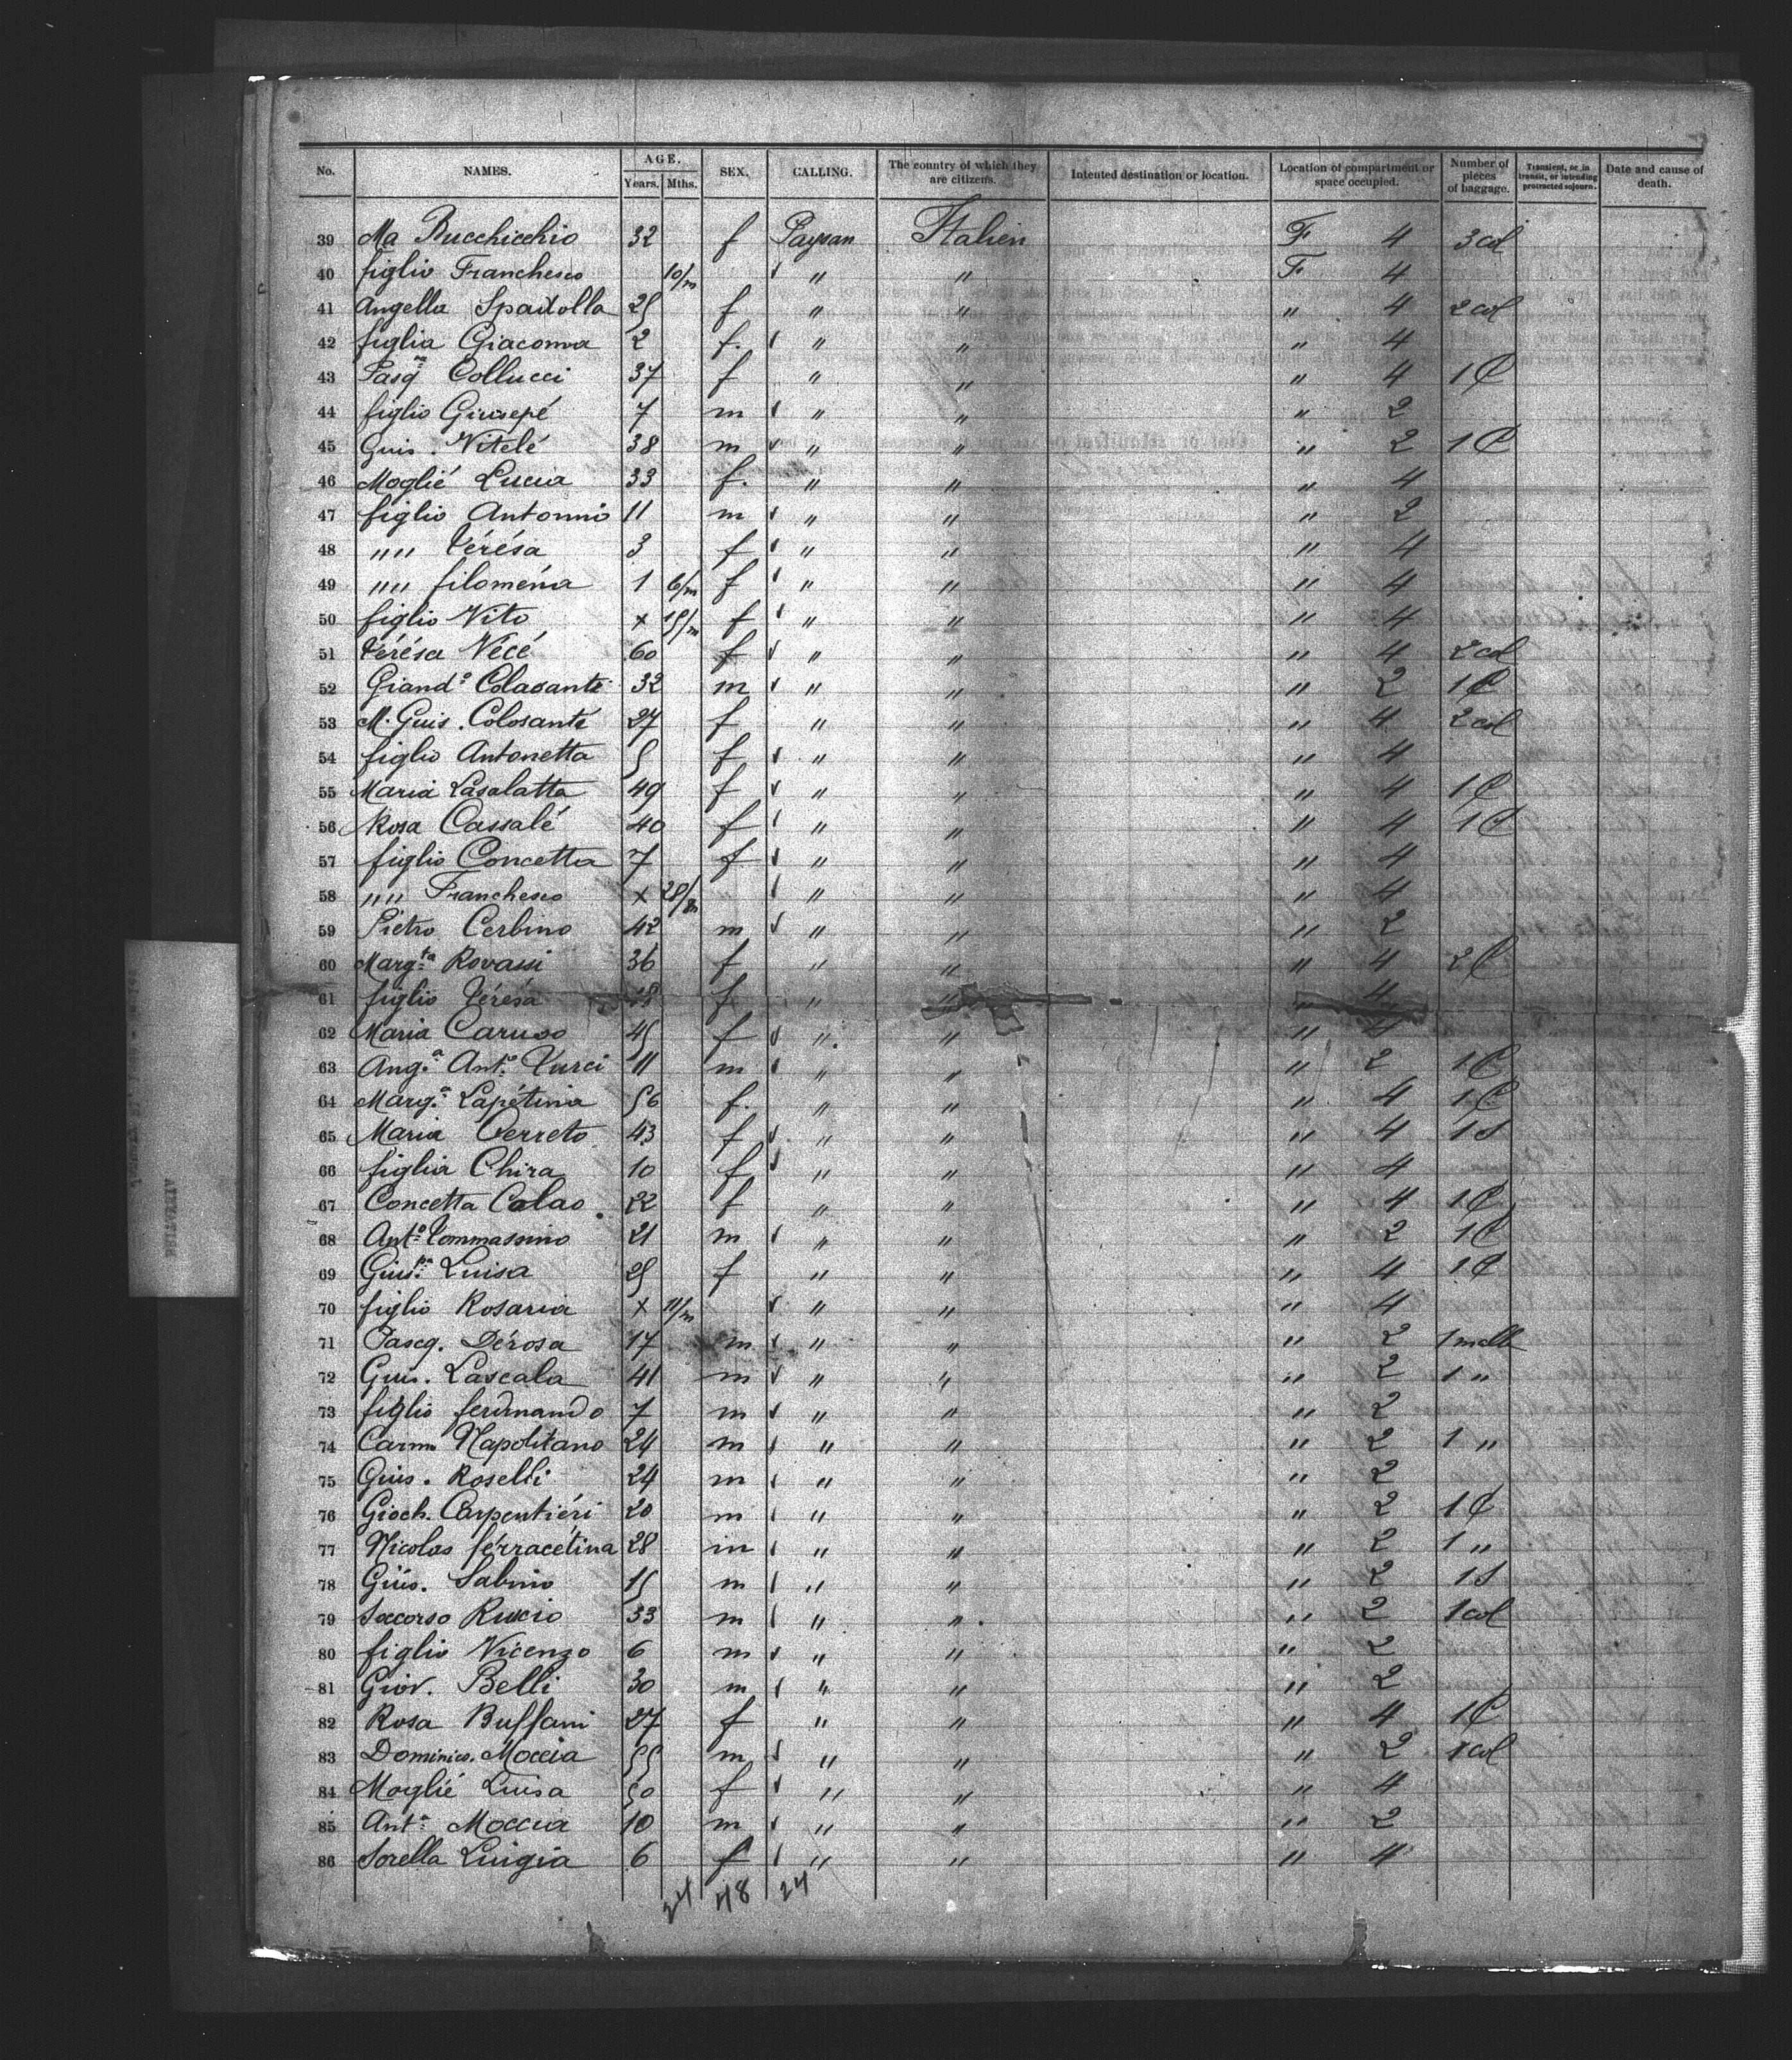 No. NAMES. AGE. Years. Mths. SEX. CALLING. The country of which they are citizens. Intented destination or location. Location of compartment or space occupied. Number of pieces of baggage. Transient, or in transit, or intending protracted sojourn. Date and cause of death.
39 Ma Bucchicchio 32 f Paysan Italien F 4 3 col
40 figlio Franchesco 10/m " " F 4
41 Angella Spadolla 25 f " " " 4 2 col
42 figlia Giacoma 2 f. " " " 4
43 Pasqna Collucci 37 f " " " 4 1 C
44 figlio Giusepé 7 m " " " 2
45 Guis. Vitélé 38 m " " " 2 1 C
46 Moglié Lucia 33 f. " " " 4
47 figlio Antonnio 11 m " " " 2
48 "" Térésa 3 f " " " 4
49 "" filoména 1 6/m f " " " 4
50 figlio Vito x 15/m f " " " 4
51 Térésa Vécé 60 f " " " 4 2 col
52 Giando Colasanté 32 m " " " 2 1 C
53 M. Guis. Colosanté 27 f " " " 4 2 col
54 figlio Antonetta 5 f " " " 4
55 Maria Lasalatta 49 f " " " 4 1 C
56 Rosa Cassalé 40 f " " " 4 1 C
57 figlio Concetta 7 f " " " 4
58 "" Franchesco x " " " 4
59 Pietro Cerbino 42 m " " " 2
60 Margta Rovassi 36 f " " " 4 2 C
61 figlio Térésa 18 f " " " 4
62 Maria Caruso 45 f " " " 4
63 Anga Anto Turci 11 m " " " 2 1 C
64 Marga Lapétina 56 f. " " " 4 1 C
65 Maria Cerreto 43 f " " " 4 1 S
66 figlia Chira 10 f " " " 4
67 Concetta Colao 22 f " " " 4 1 C
68 Anto Tommassino 21 m " " " 2 1 C
69 Giuspa Luisa 25 f " " " 4 1 C
70 figlio Rosaria x 11/m " " " 4
71 Pascq. Dérosa 17 m " " " 2 1 malle
72 Guis. Lascala 41 m " " " 2 1 "
73 figlio ferdinando 7 m " " " 2
74 Carm. Napolitano 24 m " " " 2 1 "
75 Gius. Roselli 24 m " " " 2
76 Gioch. Carpentiéri 20 m " " " 2 1 C
77 Nicolas férracétina 28 m " " " 2 1 "
78 Giùs. Sabino 15 m " " " 2 1 S
79 Soccorso Ruscio 33 m " " " 2 1 col
80 figlio Vicenzo 6 m " " " 2
81 Giov. Belli 30 m " " " 2
82 Rosa Buffani 27 f " " " 4 1 C
83 Dominico. Moccia 55 m " " " 2 1 col
84 Moglié Luisa 50 f " " " 4
85 Anto Moccia 10 m " " " 2
86 Sorella Luigia 6 f " " " 4
24 48 24